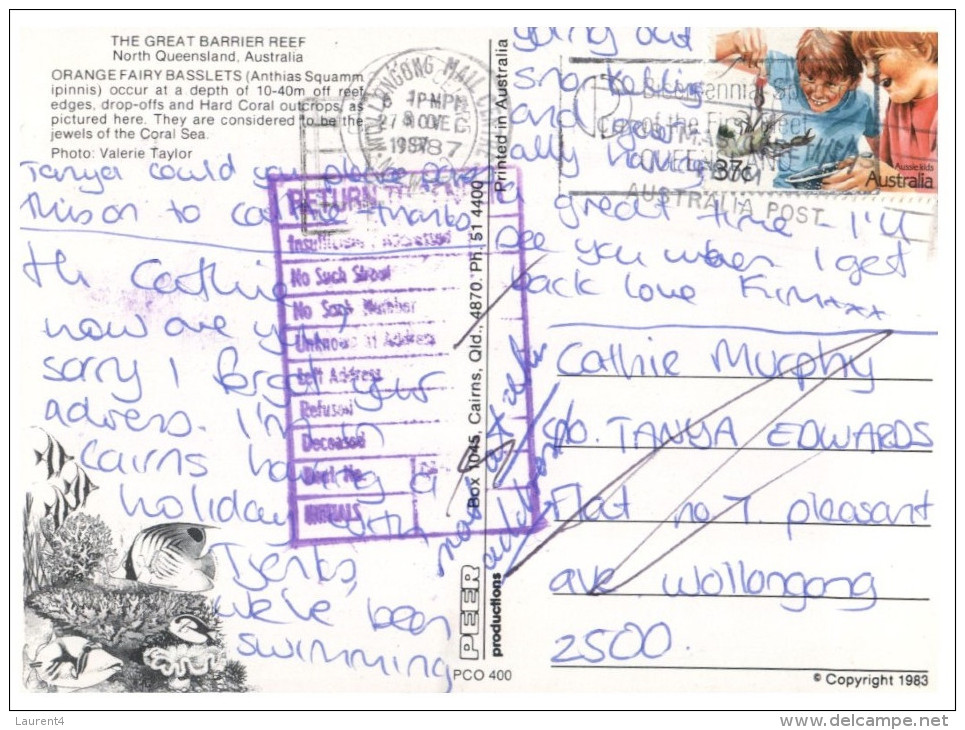 THE GREAT BARRIER REEF
North Queensland, Australia
ORANGE FAIRY BASSLETS (Anthias Squamm
ipinnis) occur at a depth of 10-40m off reef
edges, drop-offs and Hard Coral outcrops, as
pictured here. They are considered to be the
jewels of the Coral Sea.
Photo: Valerie Taylor
Tanya could you please
this on to Cathie thanks
Hi Cathie
how are you?
sorry I forgot your
adress. I'm in
Cairns having a
holiday with
we've been
swimming
going out
snorkelling
and
ally having
great time I'll
see you when I get
back love Kim xxx
Cathie Murphy
c/o. TANYA EDWARDS
Flat no 7. pleasant
ave. wollongong
2500.
RETURN TO
Insufficiently Addressed
No Such Street
No Such Number
Unknown at Address
Left Address
Refused
Deceased
INITIALS
WOLLONGONG MAIL CENTRE
1 PM
27 NOV
1987
37c
Aussie kids
Australia
AUSTRALIA POST
Printed in Australia
Box 1045, Cairns, Qld., 4870. Ph. 51 4400
PEER
productions
PCO 400
© Copyright 1983
Laurent4
delcampe.net